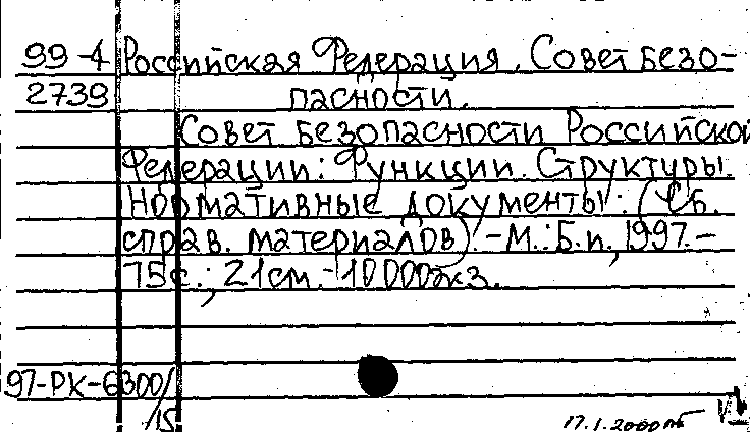 99-4 Российская Федерация. Совет безо-
2739 пасности.
Совет безопасности Российской
Федерации: Функции. Структуры.
Нормативные документы: (Сб.
справ. материалов). -М.: Б.и., 1997.-
75с.; 21см.-10000экз.
97-РК-6300/
15
17.1.2000